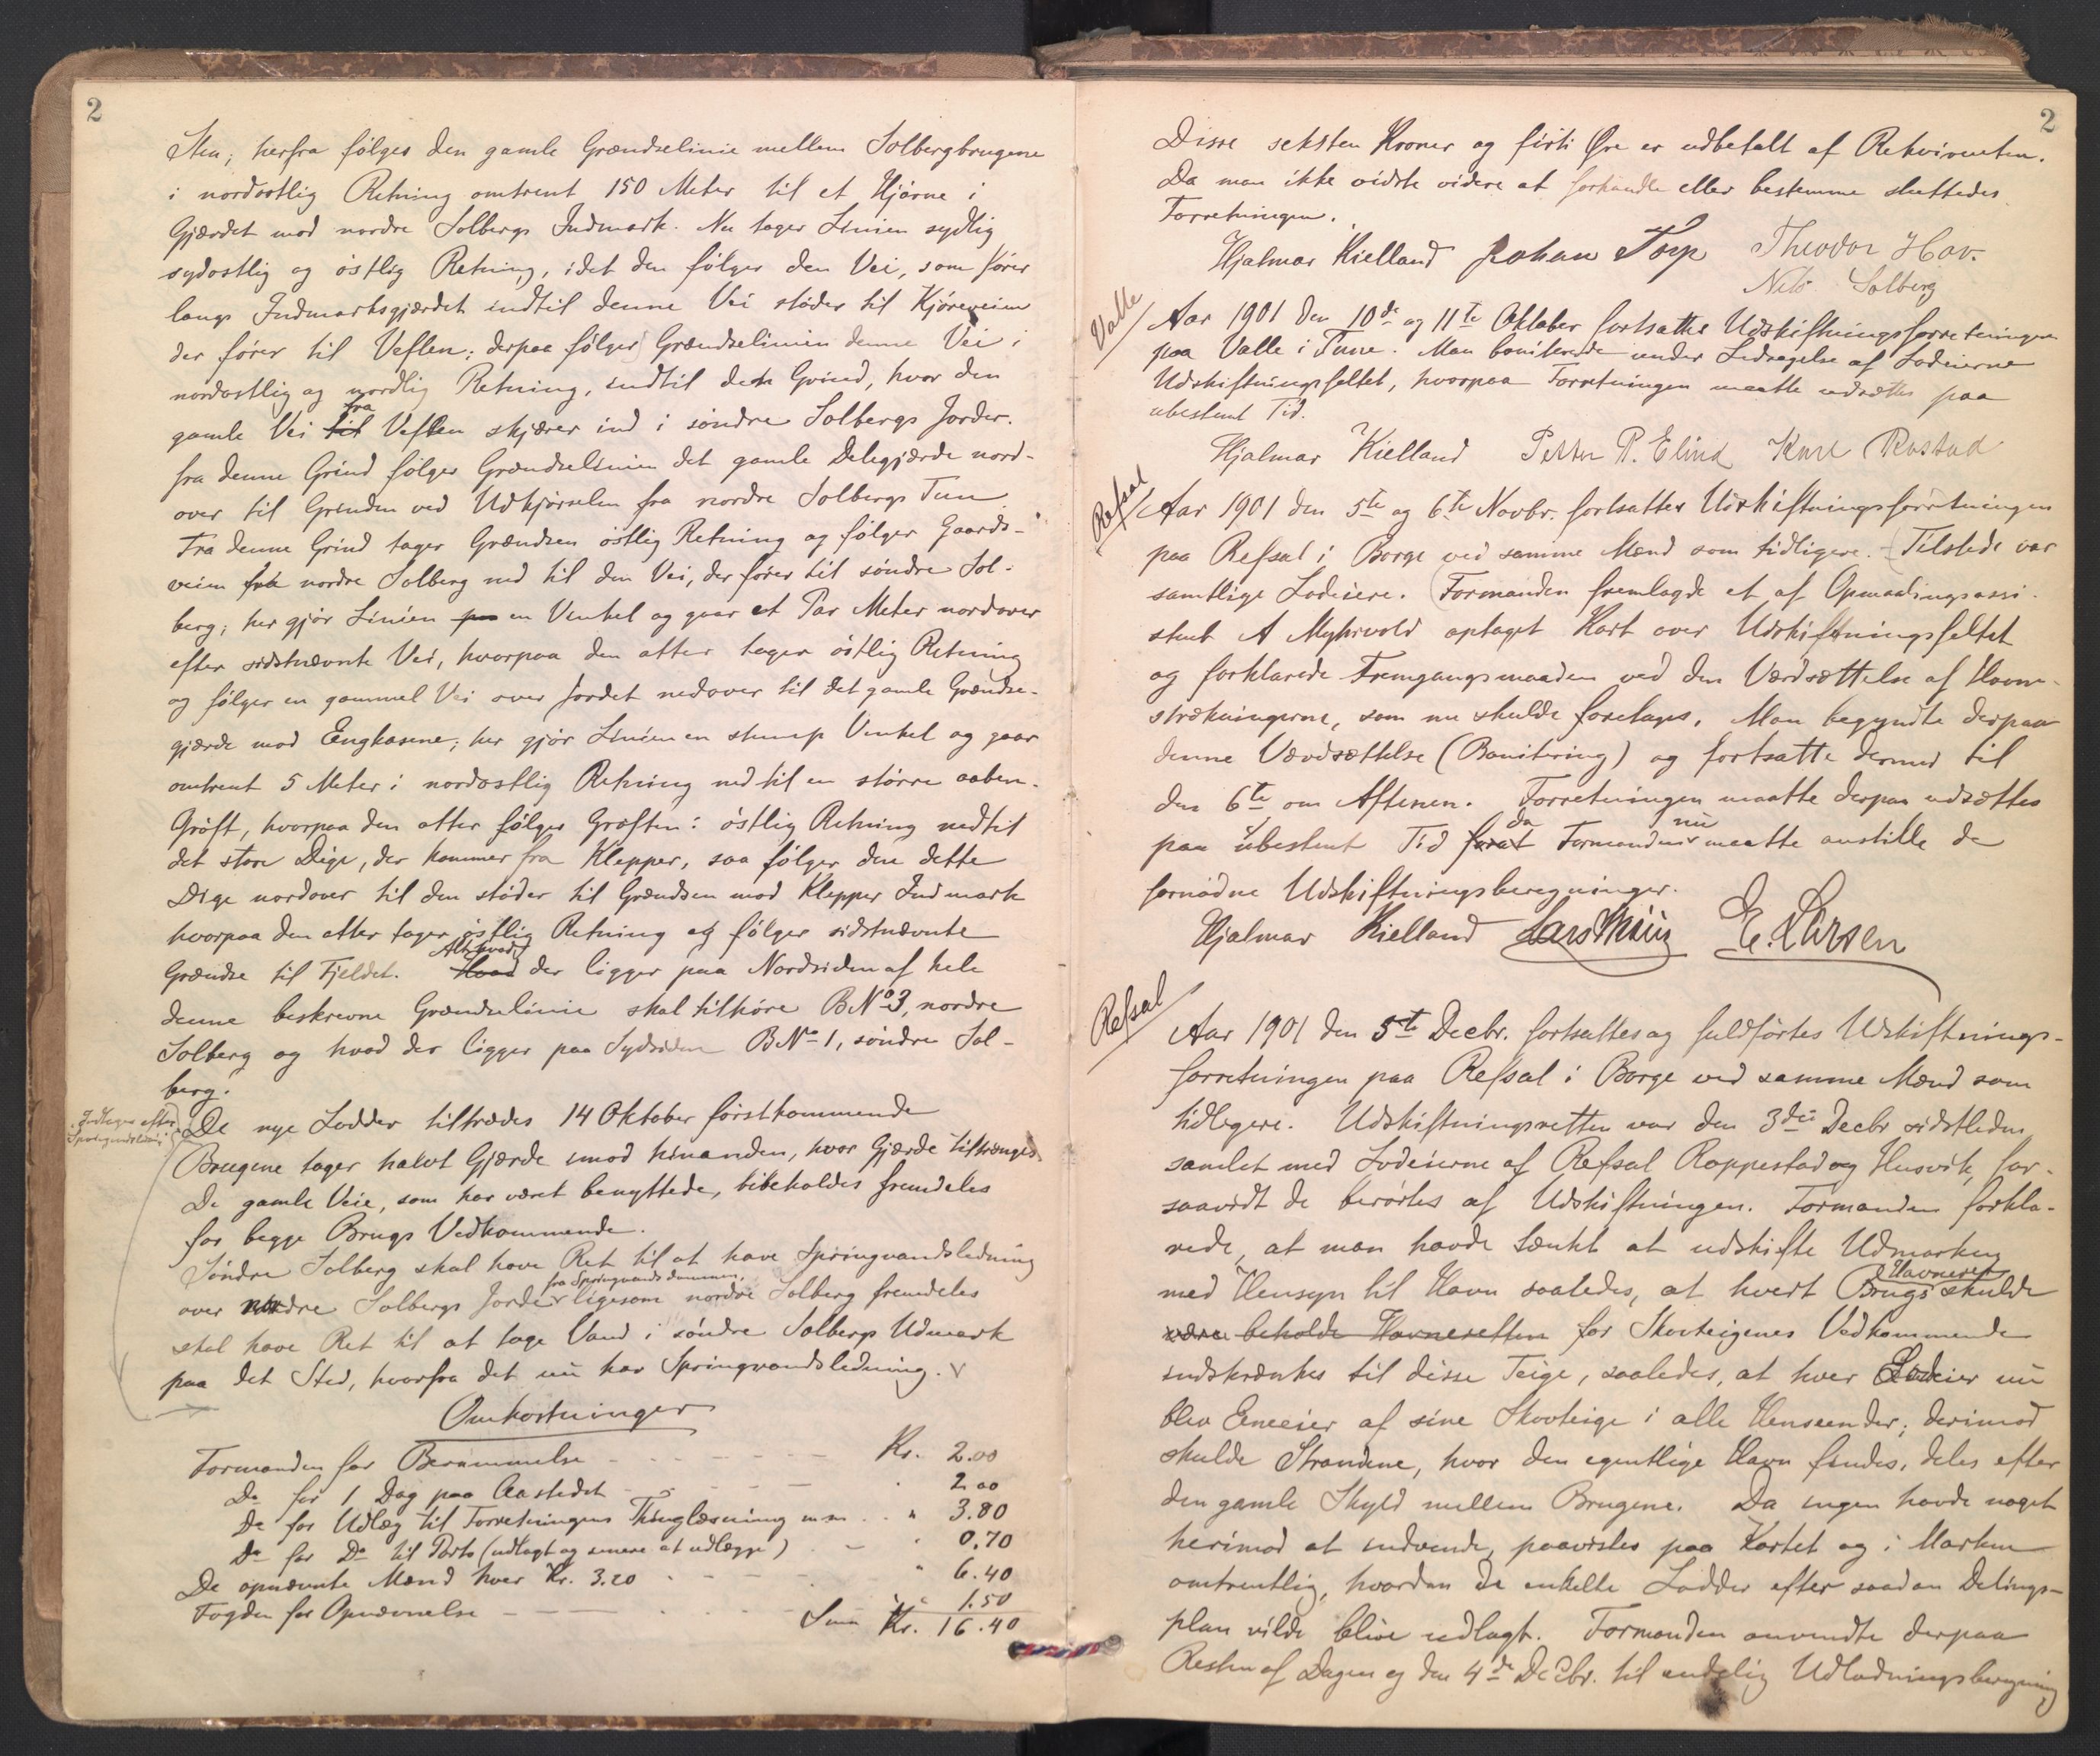 2
Sten; herfra følges den gamle Grændselinie mellem Solbergbrugene
i nordostlig Retning omtrent 150 Meter til et Hjørne i
Gjærdet mod nordre Solbergs Indmark. Nu tager Linien sydlig
sydostlig og østlig Retning, idet den følger den Vei, som fører
langs Indmarksgjærdet indtil denne Vei støder til Kjøreveien
der fører til Veflen; derpaa følger Grændselinien denne Vei i
nordostlig og nordlig Retning, indtil den Grind, hvor den
gamle Vei til fra Veflen skjærer ind i søndre Solbergs Jorder.
fra denne Grind følger Grændselinien det gamle Delegjærde nord-
over til Grinden ved Udkjørselen fra nordre Solbergs Tun
Fra denne Grind tager Grændsen østlig Retning og følger Gaards-
veien fra nordre Solberg ned til den Vei, der fører til søndre Sol-
berg; her gjør Linien paa en Vinkel og gaar et Par Meter nordover
efter sidstnævnte Vei, hvorpaa den atter tager østlig Retning
og følger en gammel Vei over Jordet nedover til det gamle Grændse-
gjærde mod Engkasene; her gjør Linien en stump Vinkel og gaar
omtrent 5 Meter i nordostlig Retning ned til en større aaben
Grøft, hvorpaa den atter følger Grøften i østlig Retning ned til
det store Dige, der kommer fra Klepper, saa følger den dette
Dige nordover til den støder til Grændsen mod Klepper Indmark
hvorpaa den atter tager østlig Retning og følger sidstnævnte
Grændse til Fjeldet. Hvad Alt hvad der ligger paa Nordsiden af hele
denne beskrevne Grændselinie skal tilhøre BNo 3, nordre
Solberg og hvad der ligger paa Sydsiden BNo 1, søndre Sol-
berg.
De nye Lodder tiltrædes 14 Oktober førstkommende
Brugene tager halvt Gjærde imod hinanden, hvor Gjærde tiltrænges
De gamle Veie, som har været benyttede, bibeholdes fremdeles
for begge Brugs Vedkommende.
Søndre Solberg skal have Ret til at have Springvandsledning
fra Springvandsdammen,
over nordre Solbergs Jorder ligesom nordre Solberg fremdeles
skal have Ret til at tage Vand i søndre Solbergs Udmark
paa det Sted, hvorfra det nu har Springvandsledning.
Omkostninger
Formanden for Berammelse Kr. 2.00
Do for 1 Dag paa Aastedet 2.00
Do for Udlæg til Forretningens Thinglæsning m.m. " 3.80
Do for Do til Porto (udlagt og senere at udlægge) " 0.70
De opnævnte Mænd hver Kr. 3.20 " 6.40
Fogden for Opnævnelse " 1.50
Sum Kr. 16.40
2
Disse seksten Kroner og firti Øre er udbetalt af Rekvirenten.
Da man ikke vidste videre at forhandle eller bestemme sluttedes
Forretningen.
Hjalmar Kielland Johan Torp Theodor Hov.
Nils Solberg
Valle
Aar 1901 den 10de og 11te Oktober fortsattes Udskiftningsforretningen
paa Valle i Tune. Man boniterede under Ledsagelse af Lodeierne
Udskiftningsfeltet, hvorpaa Forretningen maatte udsættes paa
ubestemt Tid.
Hjalmar Kielland Petter P. Elind Karl Rostad
Refsal
Aar 1901 den 5te og 6te Novbr. fortsattes Udskiftningsforretningen
paa Refsal i Borge ved samme Mænd som tidligere. Tilstede var
samtlige Lodeiere. Formanden fremlagde et af Opmaalingsassi-
stent A Myhrvold optaget Kart over Udskiftningsfeltet
og forklarede Fremgangsmaaden ved den Værdsættelse af Havne-
strækningerne, som nu skulde foretages. Man begyndte derpaa
denne Værdsættelse (Bonitering) og fortsatte dermed til
den 6te om Aftenen. Forretningen maatte derpaa udsættes
paa ubestemt Tid forat da Formanden nu maatte anstille de
fornødne Udskiftningsberegninger.
Hjalmar Kielland Lars Thiis E. Larsen
Refsal
Aar 1901 den 5te Decbr. fortsattes og fuldførtes Udskiftnings-
forretningen paa Refsal i Borge ved samme Mænd som
tidligere. Udskiftningsretten var den 3die Decbr sidstleden
samlet med Lodeierne af Refsal Roppestad og Husvik, for-
saavidt de berørtes af Udskiftningen. Formanden forkla-
rede, at man havde tænkt at udskifte Udmarken
med Hensyn til Havn saaledes, at hvert Brugs Havneret skulde
være beholde Havneretten for Skovteigenes Vedkommende
indskrænkes til disse Teige, saaledes, at hver Lodeier nu
blev Eneeier af sine Skovteige i alle Henseender; derimod
skulde Strandene, hvor den egentlige Havn findes, deles efter
den gamle Skyld mellem Brugene. Da ingen havde noget
herimod at indvende, paavistes paa Kartet og i Marken
omtrentlig, hvordan de enkelte Lodder efter saadan Delings-
plan vilde blive udlagt. Formanden anvendte derpaa
Resten af Dagen og den 4de Decbr. til endelig Udlodningsberegning